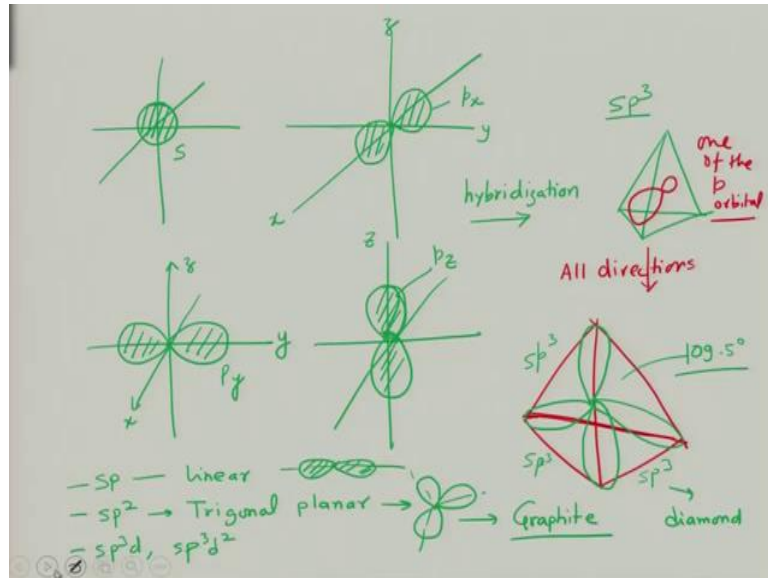 z
s
px
y
x
sp³
one
of the
p
orbital
hybridization
All directions
z
pz
z
y
Py
x
sp³
109.5°
sp³
sp³
diamond
– sp — Linear
– sp² → Trigonal planar → → Graphite
– sp³d, sp³d²